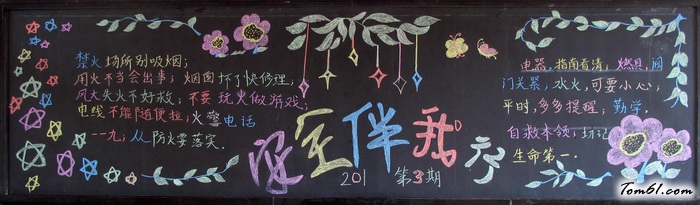 焚火场所别吸烟；
用火不当会出事；烟囱坏了快修理，
风大失火不好救；不要玩火做游戏；
电线不能随便拉；火警电话
一一九；从防火要落实。
安全伴我行
201 第3期
电器，指南看清；燃具，阀
门关紧，水火，可要小心，
平时，多多提醒；勤学，
自救本领；切记
生命第一．
Tom61.com